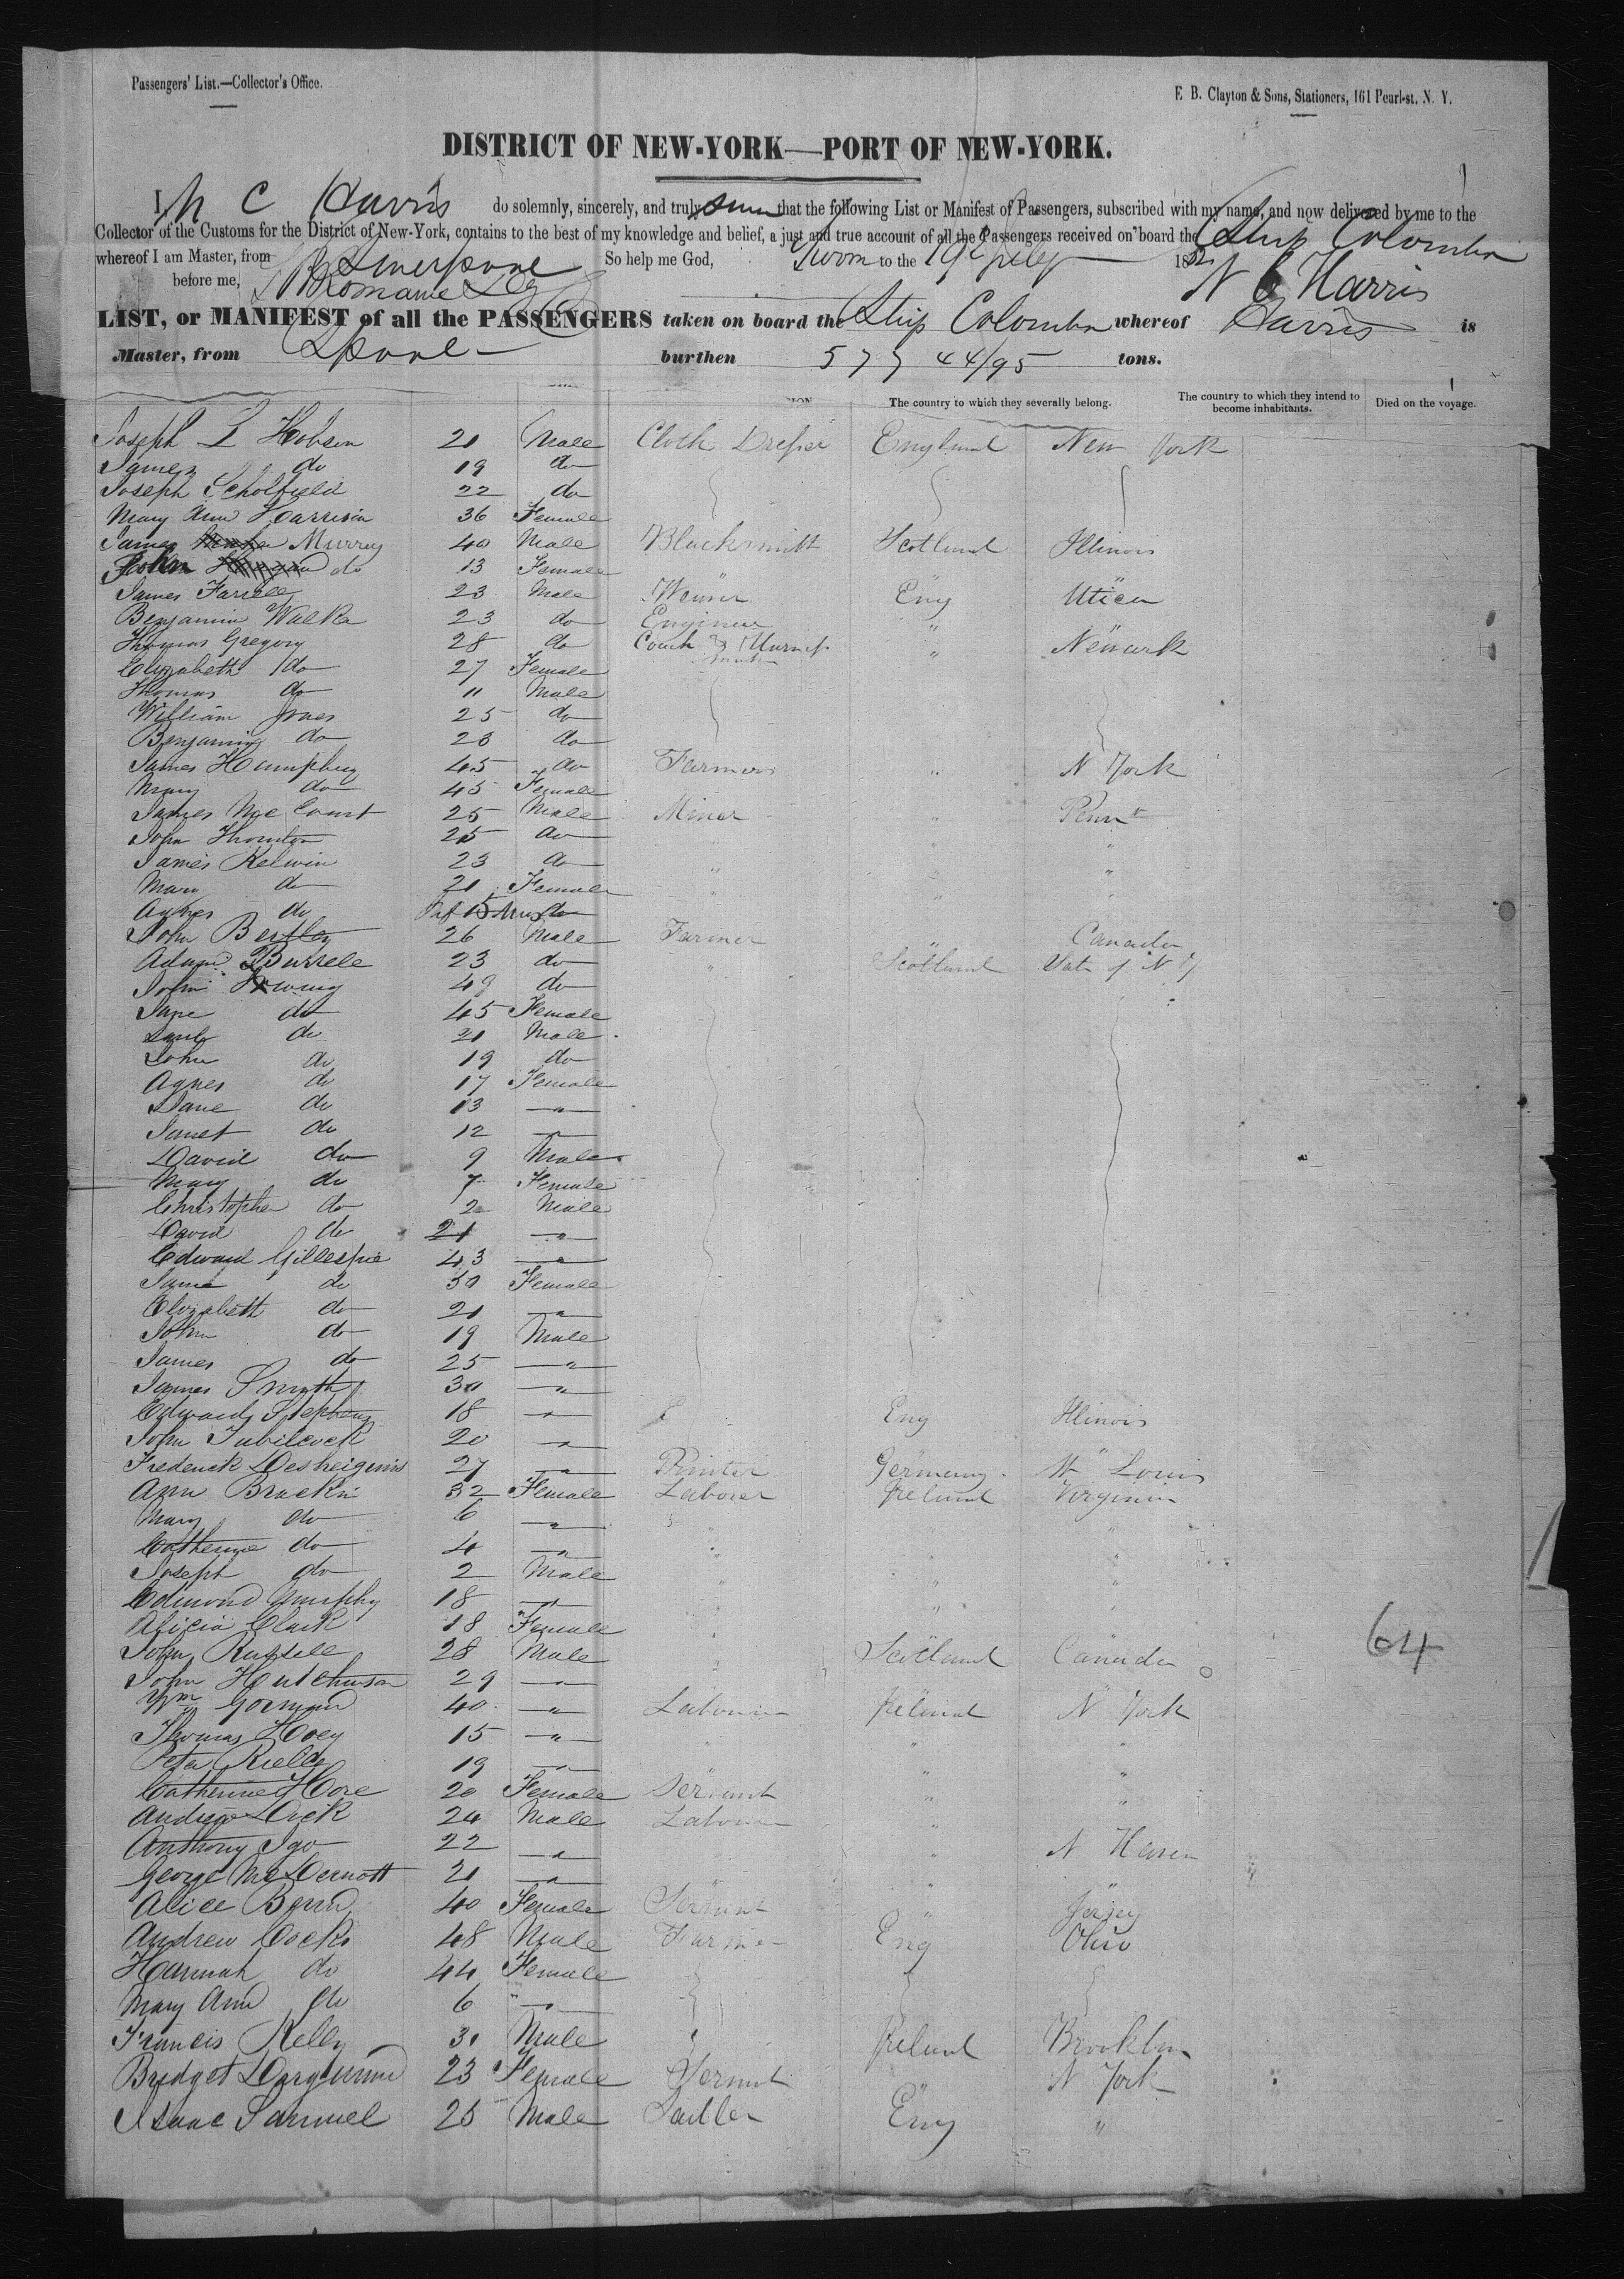 Passengers' List.—Collector's Office.
E. B. Clayton & Sons, Stationers, 161 Pearl-st. N. Y.
DISTRICT OF NEW-YORK—PORT OF NEW-YORK.
I, N C Harris do solemnly, sincerely, and truly swear that the following List or Manifest of Passengers, subscribed with my name, and now delivered by me to the
Collector of the Customs for the District of New-York, contains to the best of my knowledge and belief, a just and true account of all the Passengers received on board the Ship Colombo
whereof I am Master, from Liverpool So help me God, Sworn to the 19th 18
before me, N C Harris
LIST, or MANIFEST of all the PASSENGERS taken on board the Ship Colombo whereof Harris is
Master, from Lpool burthen 577 44/95 tons.
The country to which they severally belong. The country to which they intend to become inhabitants. Died on the voyage.
Joseph L Hobson 20 Male Cloth Dresser England New York
James do 19 do
Joseph Scholfield 22 do
Mary Ann Harrison 36 Female
James Murray 40 Male Blacksmith Scotland Illinois
do 13 Female
James Farrell 23 Male Weaver Eng Utica
Benjamin Walker 23 do Engineer "
Thomas Gregory 28 do Coach & Smith " Newark
Elizabeth do 27 Female
Thomas do 11 Male
William Jones 25 do
Benjamin do 23 do
James Humphrey 45 do Farmer " N York
Mary do 45 Female
James Mc Court 25 Male Miner " Penn
John Thornton 25 do " "
James Kelwin 23 do " "
Mary do 20 Female " " "
Agnes do Inf 15 Mos do " "
John Bertley 26 Male Farmer Canada
Adam Burrell 23 do " Scotland State of N Y
John 49 do
Jane do 45 Female
do 21 Male
John do 19 do
Agnes do 17 Female
Jane do 13 "
Janet do 12 "
David do 9 Male
Mary do 7 Female
Christopher do 2 Male
David do 21 "
Edward Gillespie 43 "
Jane do 50 Female
Elizabeth do 21 "
John do 19 Male
James do 25 "
James Smyth 30 "
Edward Stephens 18 " Eng Illinois
John Tubilcock 20 " " "
Frederick 27 " Printer Germany St Louis
Ann Brackin 32 Female Laborer Ireland Virginia
Mary do 6 " " " "
Catherine do 4 " " " "
Joseph do 2 Male " " "
Edmond Murphy 18 " " " "
Alicia Clark 18 Female "
John Russell 28 Male " Scotland Canada
64
John Hutchinson 29 " " "
Wm Gorman 40 " Laborer Ireland N York
Thomas Hoey 15 " " " "
Peter Rielly 19 " " "
Catherine Hore 20 Female Servant " "
Andrew Dick 24 Male Laborer "
Anthony Igo 22 " " N Haven
George McDermott 21 " " "
Alice Byrne 40 Female Servant " Jersey
Andrew Cocks 48 Male Farmer Eng Ohio
Hannah do 44 Female
Mary Ann do 6 "
Francis Kelly 30 Male Ireland Brooklyn
Bridget 23 Female Servant " N York
Isaac Samuel 25 Male Sadler Eng "